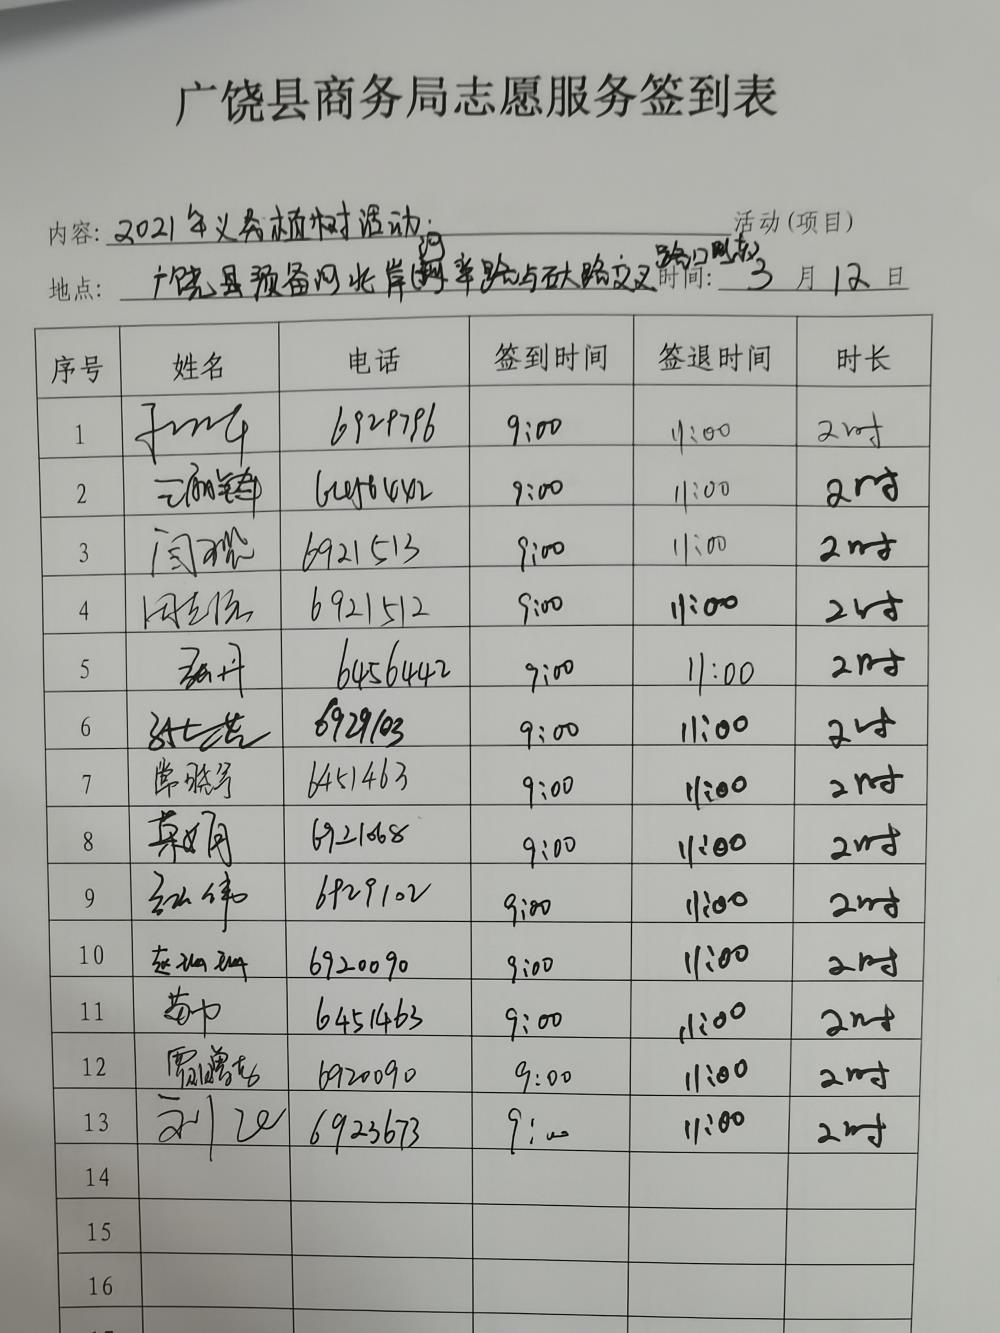 广饶县商务局志愿服务签到表
内容: 2021年义务植树活动 活动(项目)
地点: 广饶县预备河北岸 路与石大路交叉路口 时间: 3月12日
序号 姓名 电话 签到时间 签退时间 时长
1 6929796 9:00 11:00 2时
2 6456442 9:00 11:00 2时
3 闫 6921513 9:00 11:00 2时
4 6921512 9:00 11:00 2时
5 丹 6456442 9:00 11:00 2时
6 6929103 9:00 11:00 2时
7 常晓 6451463 9:00 11:00 2时
8 6921068 9:00 11:00 2时
9 伟 6929102 9:00 11:00 2时
10 赵 6920090 9:00 11:00 2时
11 6451463 9:00 11:00 2时
12 贾增 6920090 9:00 11:00 2时
13 刘 6923673 9:00 11:00 2时
14
15
16